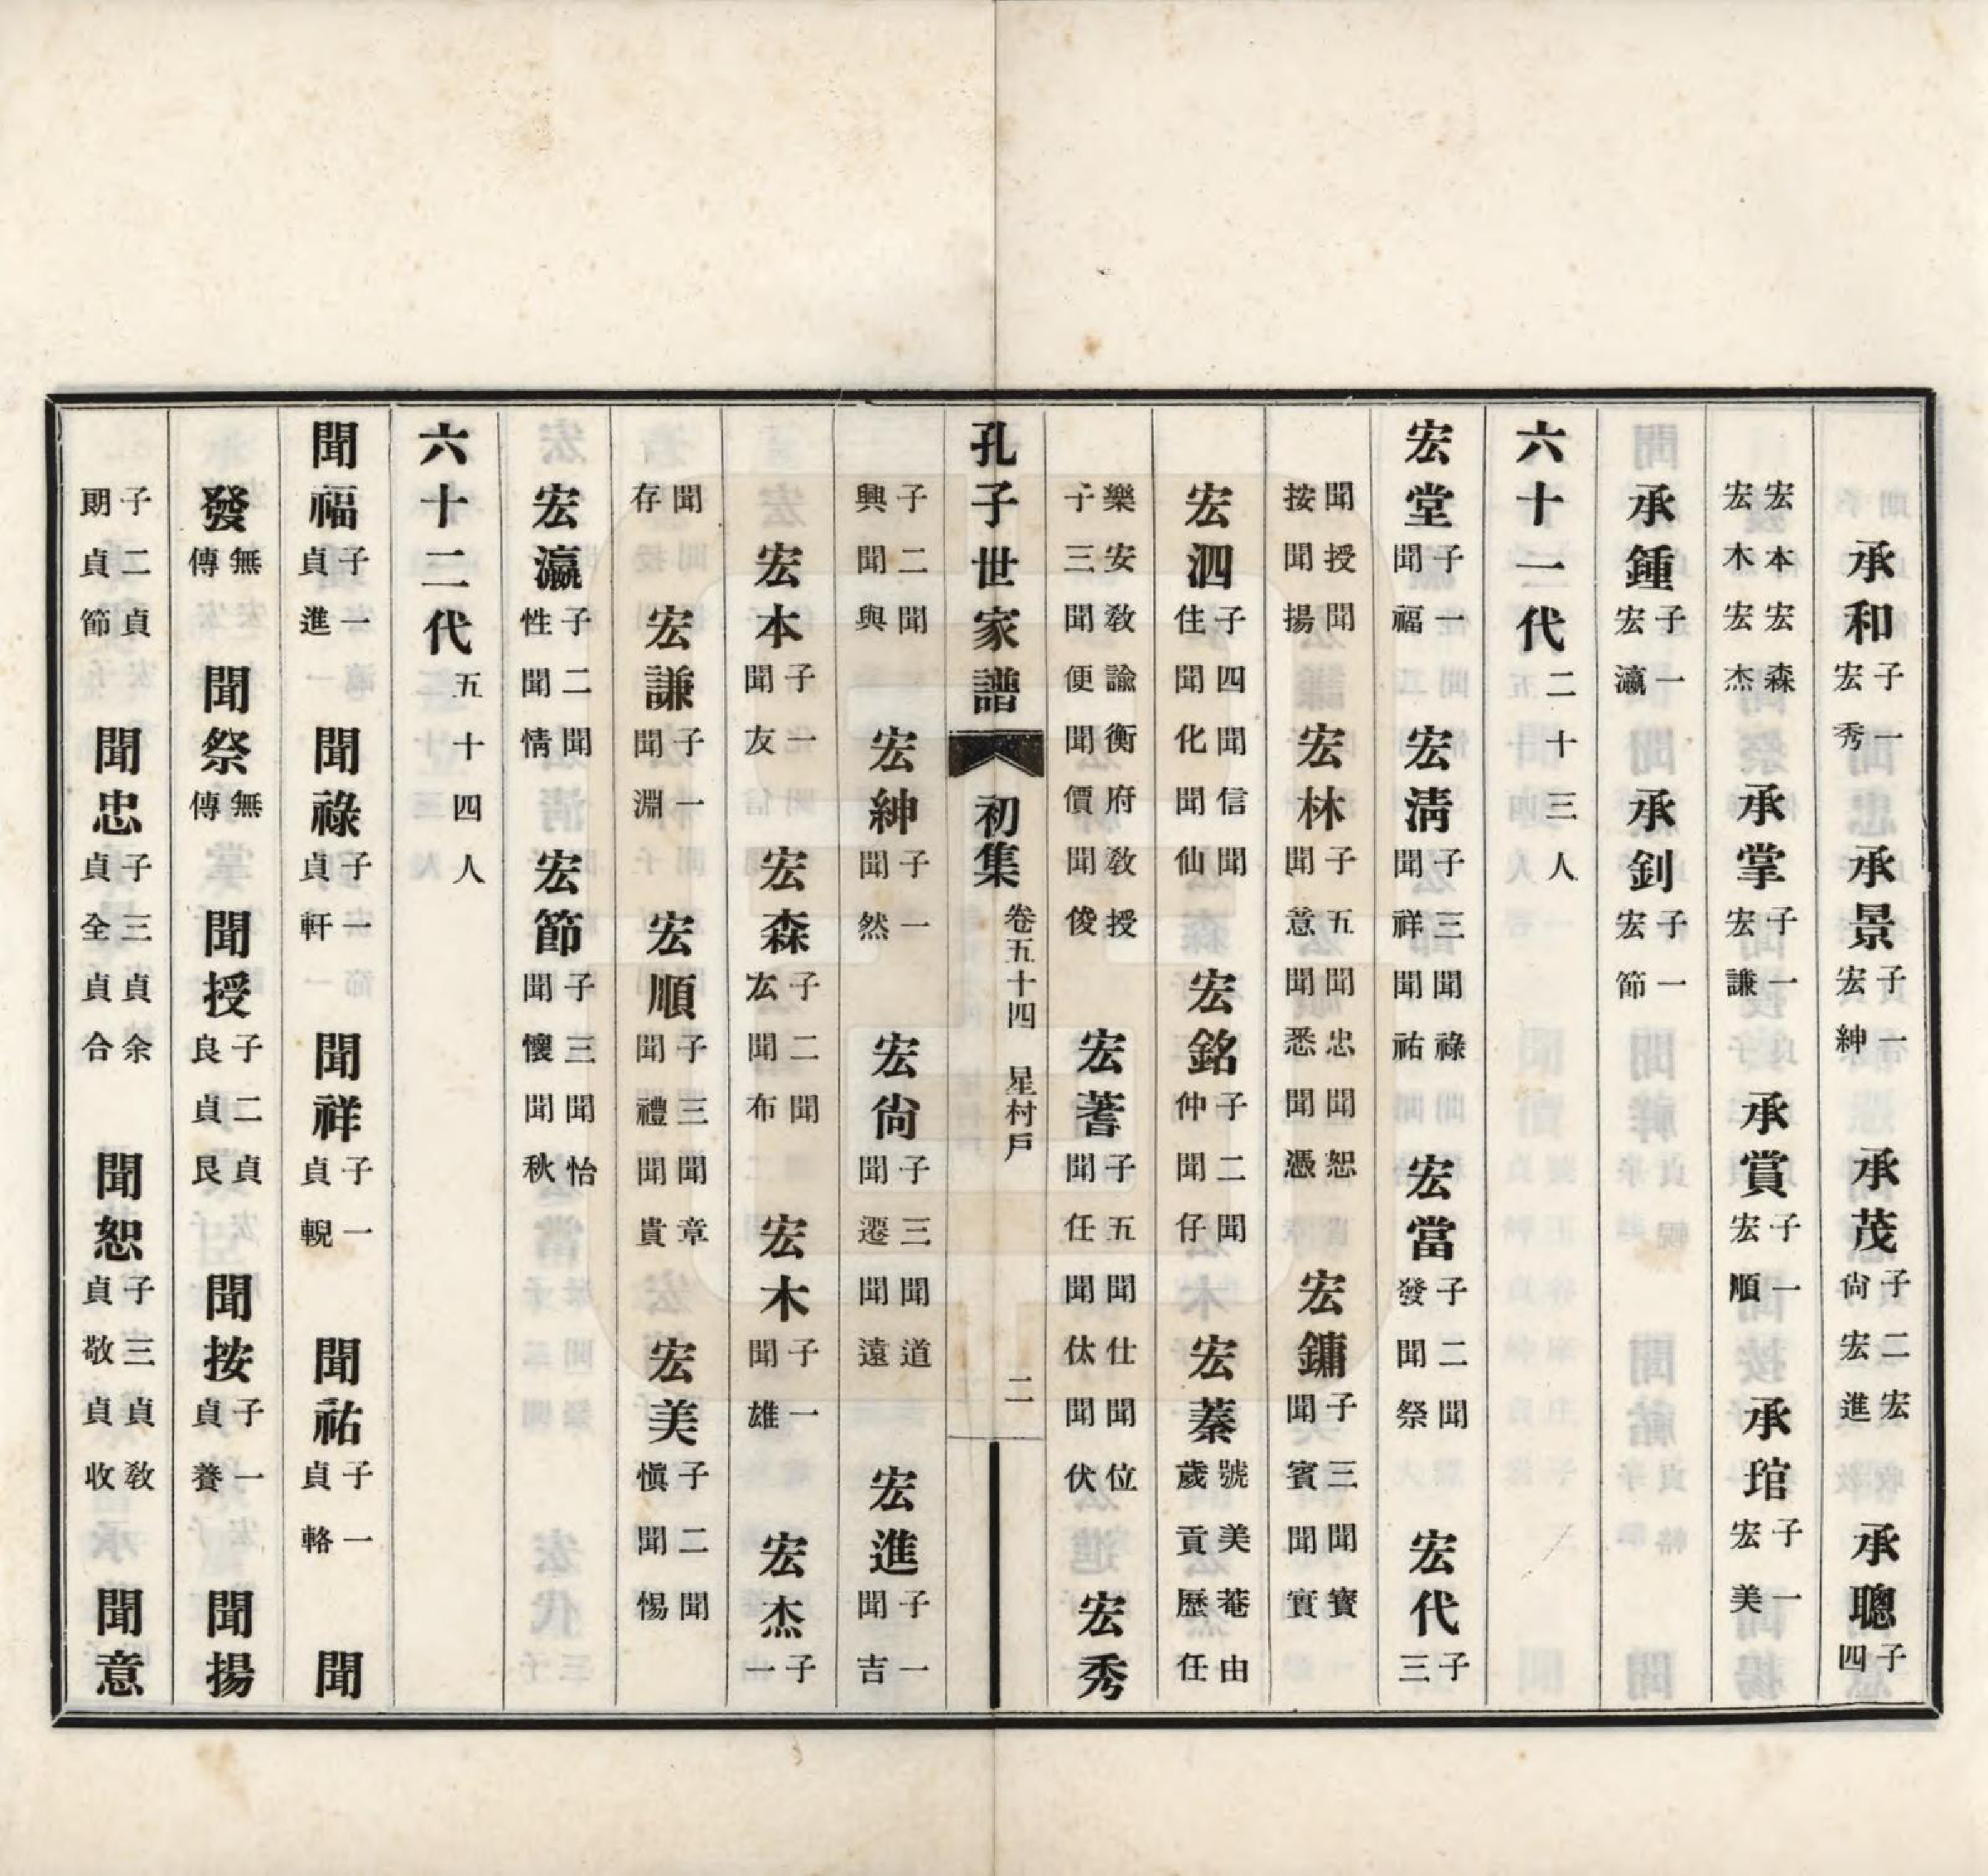 承和子一宏秀　承景子一宏紳　承茂子二宏尙宏進　承聰子四
宏本宏森宏木宏杰　承掌子一宏謙　承賞子一宏順　承琯子一宏美
承鍾子一宏瀛　承釗子一宏節
六十一代二十三人
宏堂子一聞福　宏淸子三聞祿聞祥聞祐　宏當子二聞發聞祭　宏代子三
聞授聞按聞揚　宏林子五聞忠聞恕聞意聞悉聞憑　宏鏞子三聞寶聞賓聞實
宏泗子四聞信聞住聞化聞仙　宏銘子二聞仲聞仔　宏蓁號美菴由歲貢歷任
樂安敎諭衡府敎授子三聞便聞價聞俊　宏蓍子五聞仕聞位聞任聞㑀聞伏　宏秀
子二聞興聞與　宏紳子一聞然　宏尙子三聞道聞遷聞遠　宏進子一聞吉
宏本子一聞友　宏森子二聞厷聞布　宏木子一聞雄　宏杰子一
聞存　宏謙子一聞淵　宏順子三聞章聞禮聞貴　宏美子二聞愼聞惕
宏瀛子二聞性聞情　宏節子三聞怡聞懷聞秋
六十二代五十四人
聞福子一貞進　聞祿子一貞軒　聞祥子一貞輗　聞祐子一貞輅　聞
發無傳　聞祭無傳　聞授子二貞良貞艮　聞按子一貞養　聞揚
子二貞䎡貞節　聞忠子三貞余貞全貞合　聞恕子三貞敎貞敬貞收　聞意
孔子世家譜　初集　卷五十四　星村戶　二